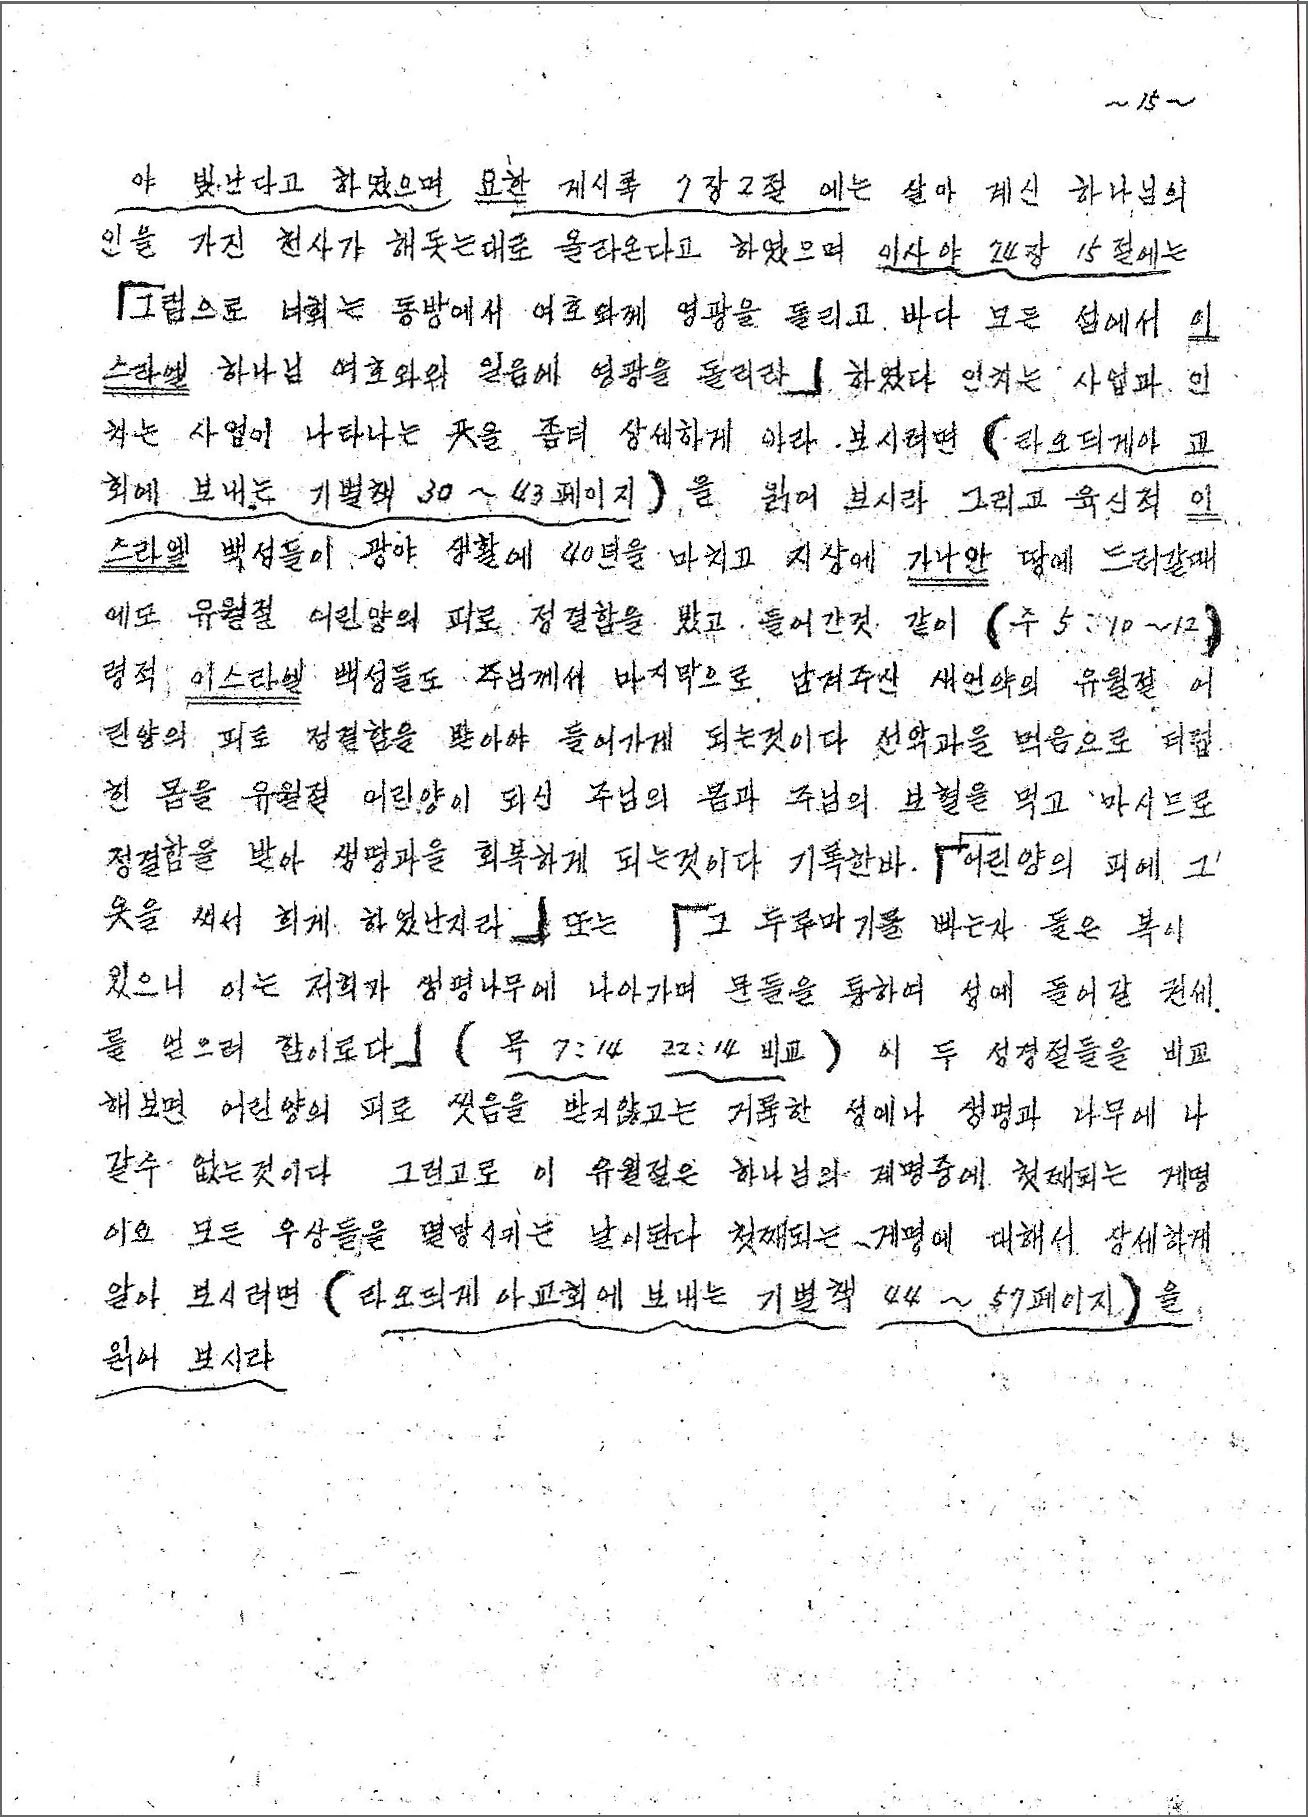 ~15~
야 빛난다고 하였으며 요한 계시록 7장2절 에는 살아 계신 하나님의
인을 가진 천사가 해돗는대로 올라온다고 하였으며 이사야 24장 15절에는
「그럼으로 너희는 동방에서 여호와께 영광을 돌리고 바다 모든 섬에서 이
스라엘 하나님 여호와의 일음에 영광을 돌리라」 하였다 인치는 사업과 인
치는 사업이 나타나는 곳을 좀더 상세하게 아라 보시려면 (라오듸게아 교
회에 보내는 기별책 30~43페이지) 을 읽어 보시라 그리고 육신적 이
스라엘 백성들이 광야 생활에 40년을 마치고 지상에 가나안 땅에 드러갈때
에도 유월절 어린양의 피로 정결함을 받고 들어간것 같이 (주 5:10~12)
령적 이스라엘 백성들도 주님께서 마지막으로 남겨주신 새언약의 유월절 어
린양의 피로 정결함을 받아야 들어가게 되는것이다 선악과을 먹음으로 더럽
힌 몸을 유월절 어린양이 되신 주님의 몸과 주님의 보혈을 먹고 마시므로
정결함을 받아 생명과을 회복하게 되는것이다 기록한바 「어린양의 피에 그
옷을 씨서 희게 하였난지라」 또는 「그 두루마기를 빠는자 들은 복이
있으니 이는 저희가 생명나무에 나아가며 문들을 통하여 성에 들어갈 권세
를 얻으려 함이로다」 ( 묵 7:14 22:14 비교 ) 이 두 성경절들을 비교
해보면 어린양의 피로 씻음을 받지않고는 거룩한 성에나 생명과 나무에 나
갈수 없는것이다 그런고로 이 유월절은 하나님의 계명중에 첫째되는 계명
이요 모든 우상들을 멸망시키는 날이된다 첫째되는 계명에 대해서 상세하게
알아 보시려면 (라오듸게아교회에 보내는 기별책 44~57페이지)을
읽어 보시라